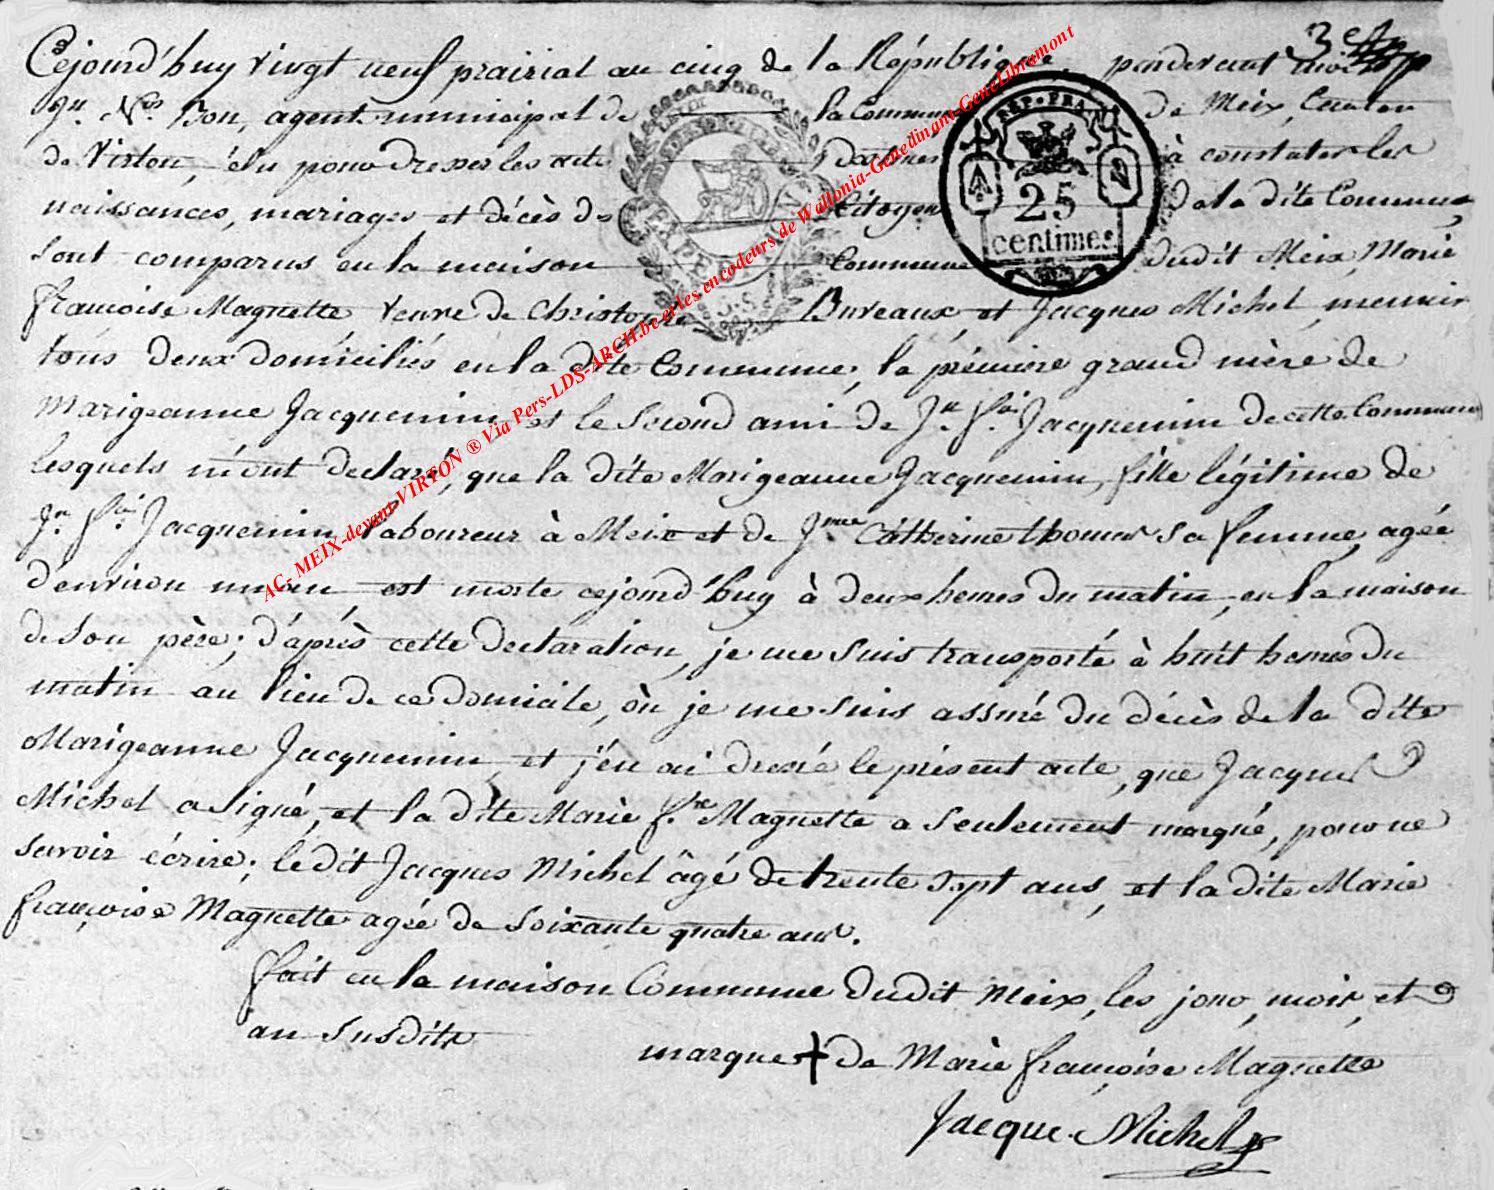 3e
Cejourd'huy vingt neuf prairial an cinq de la République, pardevant moi
Jn. Ncs Bon, agent municipal de la Commune de Meix, Canton
de Virton, élu pour dresser les actes destinés à constater les
naissances, mariages et décès des Citoyens de la dite Commune,
sont comparus en la maison Commune dudit Meix, Marie
françoise Magnette veuve de Christophe Bureaux, et Jacques Michel
tous deux domiciliés en la dite Commune, la prémière grand mère de
Marigeanne Jacquemin et le second ami de Jn. fois. Jacquemin de cette Commune
lesquels m'ont declaré, que la dite Marigeanne Jacquemin, fille légitime de
Jn. fois. Jacquemin laboureur à Meix et de Jnne Catherine thomas sa femme, agée
d'environ un an est morte cejourd'huy à deux heures du matin, en la maison
de son père; d'après cette declaration, je me suis transporté à huit heures du
matin au lieu de ce domicile, où je me suis assuré du décès de la dite
Marigeanne Jacquemin, et j'en ai dressé le présent acte, que Jacques
Michel a signé, et la dite Marie f.se Magnette a seulement marqué, pour ne
savoir écrire; le dit Jacques Michel âgé de trente sept ans, et la dite Marie
françoise Magnette agée de soixante quatre ans.
fait en la maison Commune dudit Meix, les jour, mois, et
an susdits
marque + de Marie françoise Magnette
Jacque Michel
REP. FRA.
25
centimes
AC- MEIX-devant-VIRTON ® Via Pers-LDS-ARCH.be et les encodeurs de Wallonia-Genedinant-GeneLibramont